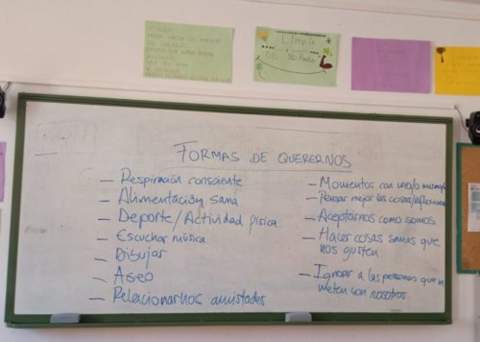 FORMAS DE QUERERNOS
– Respiración consciente
– Alimentación sana
– Deporte/Actividad física
– Escuchar música
– Dibujar
– Aseo
– Relacionarnos amistades
– Momentos con uno/a mism@
– Pensar mejor las cosas/reflexionar
– Aceptarnos como somos
– Hacer cosas sanas que
nos gusten
– Ignorar a las personas que
meten con nosotros